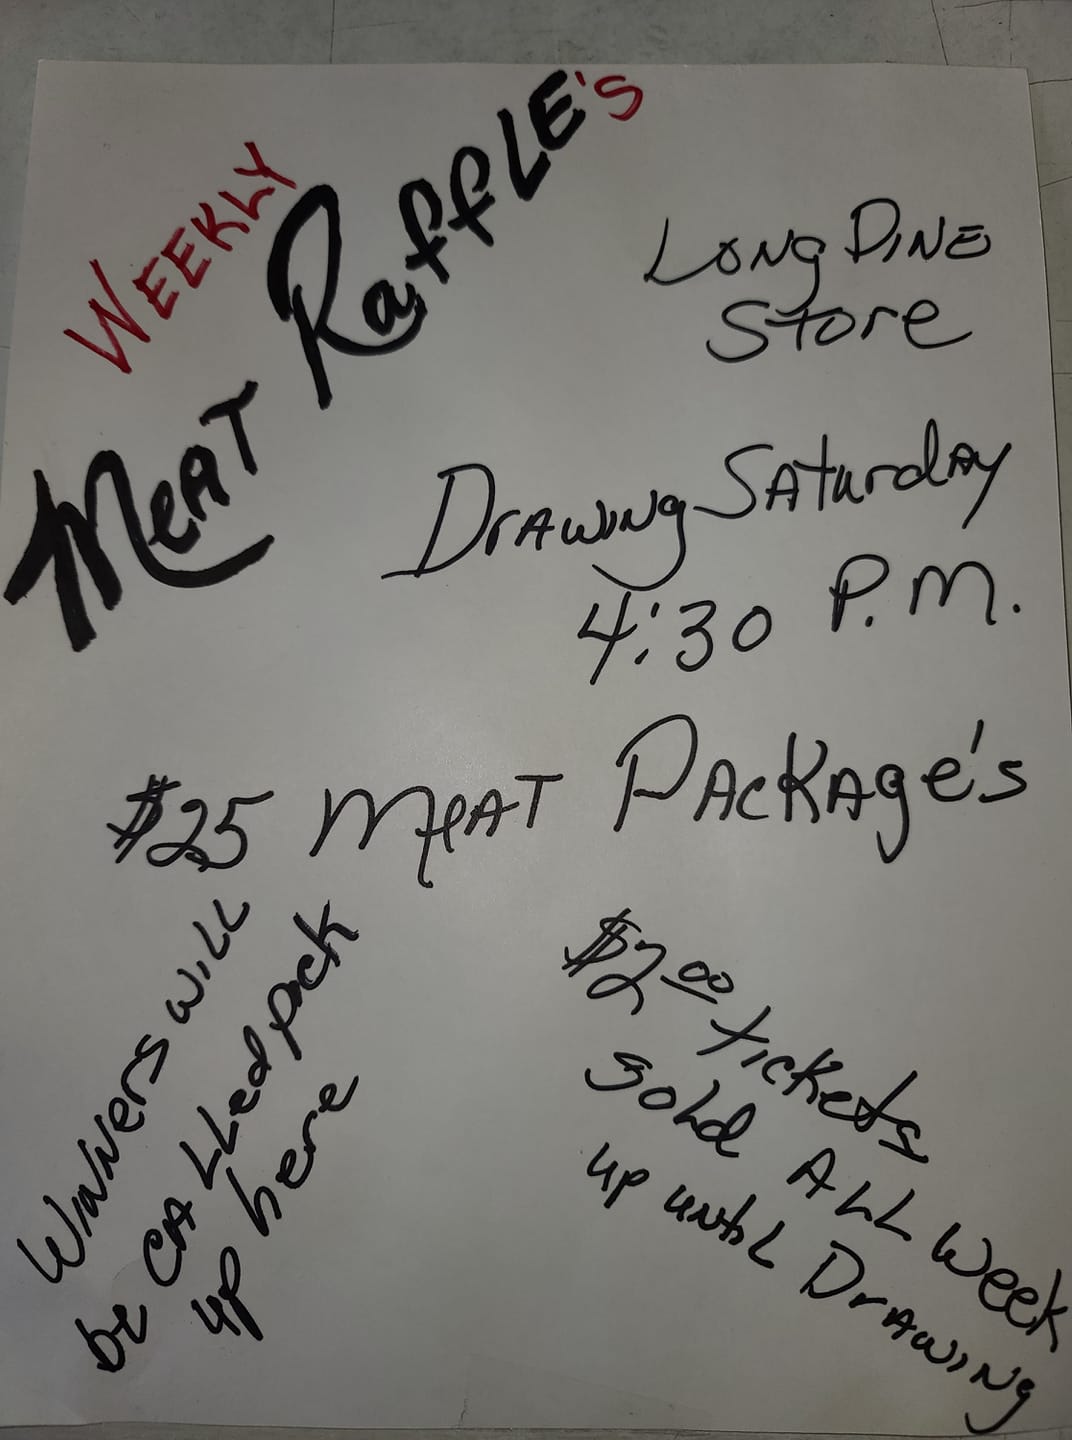 WEEKLY
MEAT RaffLE's
LONg PINE
Store
DrAWINg SAturdAy
4:30 P.M.
$25 MEAT PAcKAge's
WINNers wiLL
be CALLed pick
up here
$2.00 tickets
soLd ALL week
up untiL DrAwiNg